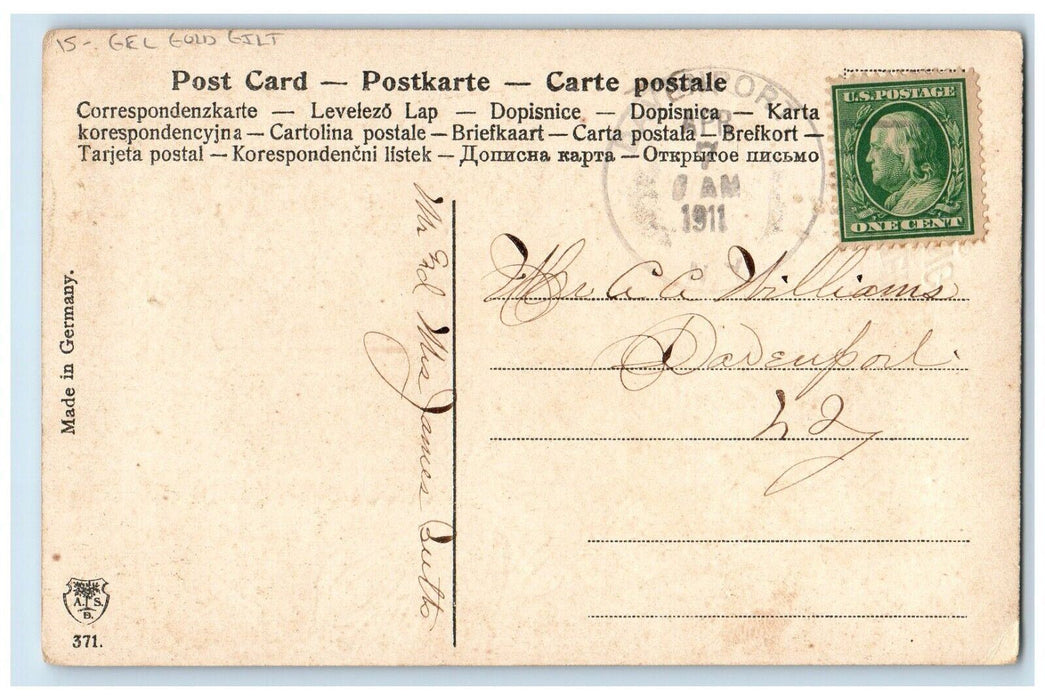 15-. GEL GOLD GILT
Post Card — Postkarte — Carte postale
Correspondenzkarte — Levelező Lap — Dopisnice — Dopisnica — Karta
korespondencyjna — Cartolina postale — Briefkaart — Carta postala — Brefkort —
Tarjeta postal — Korespondenčni listek — Дописна карта — Открытое письмо
APR
7
AM
1911
U.S. POSTAGE
ONE CENT
Mr A A Williams
Davenport
NY
Mr and Mrs James Butts
Made in Germany.
A. S.
B.
371.